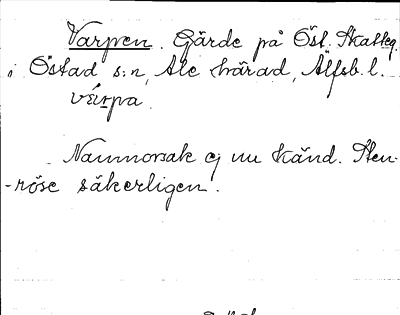 Varpen. Gärde på Öst. Skatteg.
i Östad s:n, Ale härad, Älfsb. l.
várpa.
Namnorsak ej nu känd. Sten-
-röse säkerligen.